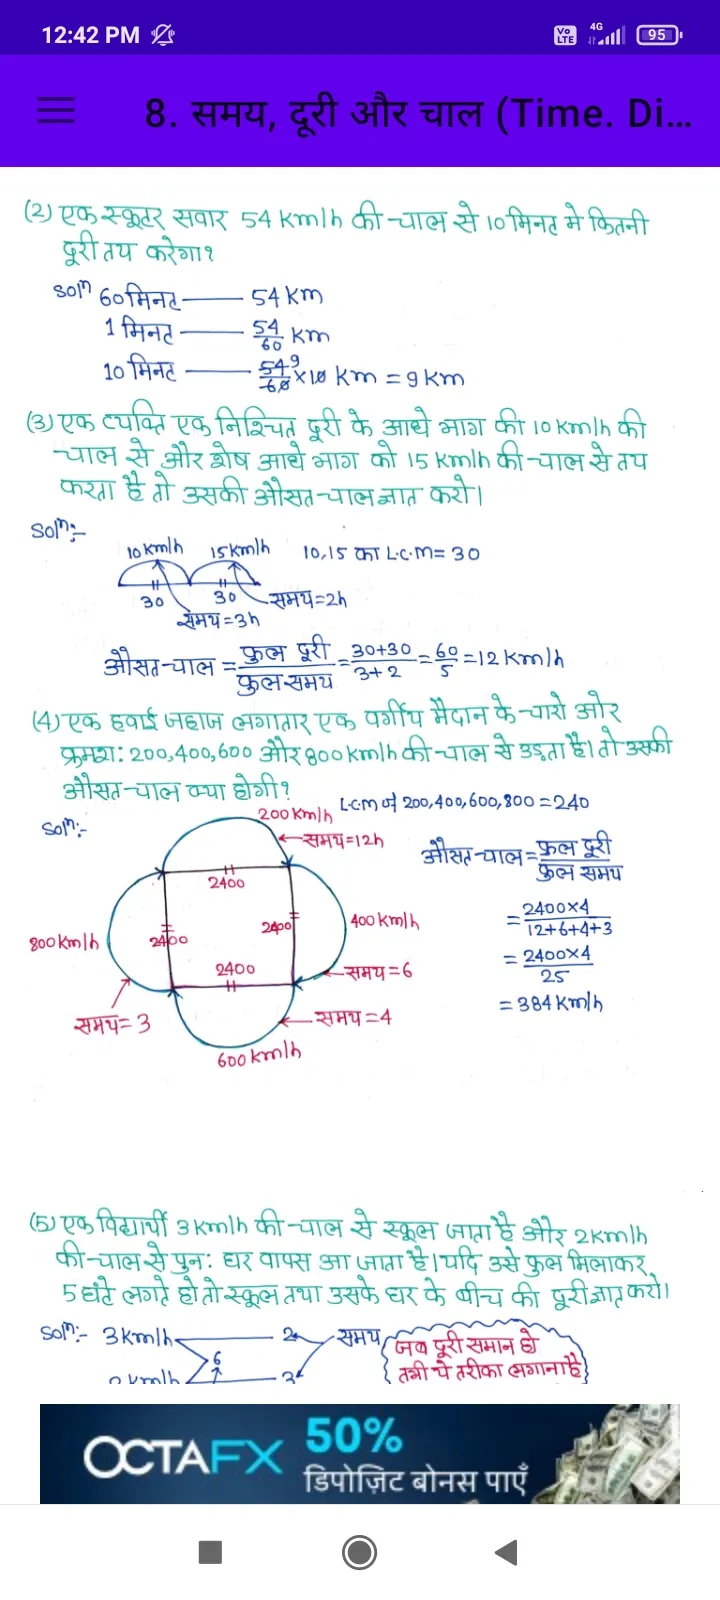 12:42 PM
Vo LTE 4G 95
8. समय, दूरी और चाल (Time. Di...
(2) एक स्कूटर सवार 54 Km/h की चाल से 10 मिनट मे कितनी
दूरी तय करेगा?
Solⁿ 60 मिनट — 54 Km
1 मिनट — 54/60 Km
10 मिनट — 54/60 9 ×10 Km = 9 Km
(3) एक व्यक्ति एक निश्चित दूरी के आधे भाग की 10 Km/h की
चाल से और शेष आधे भाग को 15 Km/h की चाल से तय
करता है तो उसकी औसत चाल ज्ञात करो।
Solⁿ:-
10 Km/h 15 Km/h 10,15 का L.C.M = 30
30 30 समय=2h
समय=3h
औसत चाल = कुल दूरी/कुल समय = 30+30/3+2 = 60/5 = 12 Km/h
(4) एक हवाई जहाज लगातार एक वर्गीय मैदान के चारो ओर
क्रमश: 200,400,600 और 800 Km/h की चाल से उड़ता है। तो उसकी
औसत चाल क्या होगी?
L.C.M of 200,400,600,800 = 240
Solⁿ:-
200 Km/h
समय=12h
औसत चाल = कुल दूरी/कुल समय
2400
800 Km/h 2400 2400 400 Km/h
= 2400×4/12+6+4+3
2400
समय=6
= 2400×4/25
समय= 3
समय=4
= 384 Km/h
600 Km/h
(5) एक विद्यार्थी 3 Km/h की चाल से स्कूल जाता है और 2 Km/h
की चाल से पुन: घर वापस आ जाता है। यदि उसे कुल मिलाकर
5 घंटे लगते हो तो स्कूल तथा उसके घर के बीच की दूरी ज्ञात करो।
Solⁿ:- 3 Km/h 2 समय
6
जब दूरी समान हो
2 Km/h 3
तभी ये तरीका लगाना है
OCTAFX
50%
डिपोज़िट बोनस पाएँ